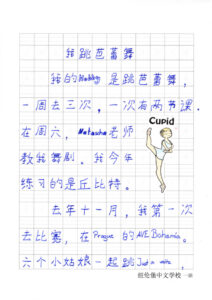 我跳芭蕾舞
我的Hobby是跳芭蕾舞，
一周去三次，一次有两节课.
Cupid
在周六，Natasha老师
教我舞剧。我今年
练习的是丘比特。
去年十一月，我第一次
去比赛，在Prague的AVE Bohemia。
六个小姑娘一起跳
纽伦堡中文学校